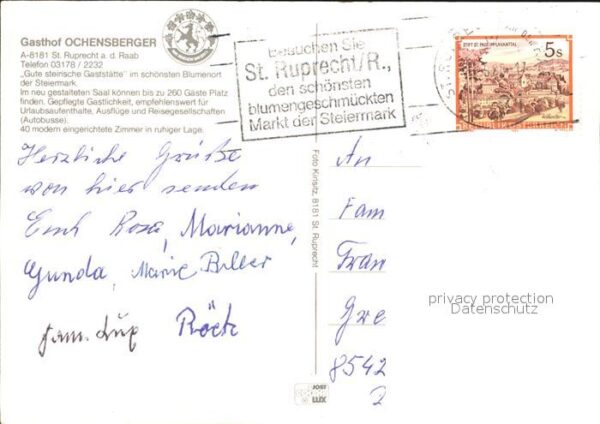 Gasthof OCHENSBERGER
A-8181 St. Ruprecht a. d. Raab
Telefon 03178 / 2232
„Gute steirische Gaststätte" im schönsten Blumenort
der Steiermark.
Im neu gestalteten Saal können bis zu 260 Gäste Platz
finden. Gepflegte Gastlichkeit, empfehlenswert für
Urlaubsaufenthalte, Ausflüge und Reisegesellschaften
(Autobusse).
40 modern eingerichtete Zimmer in ruhiger Lage.
Besuchen Sie
St. Ruprecht/R.,
den schönsten
blumengeschmückten
Markt der Steiermark
5s
Herzliche Grüße
von hier senden
Euch Rosa, Marianne,
Gunda, Marie
Fam.
Foto Kirisitz, 8181 St. Ruprecht
An
Fam
Fran
8542
privacy protection
Datenschutz
JOST
LUX